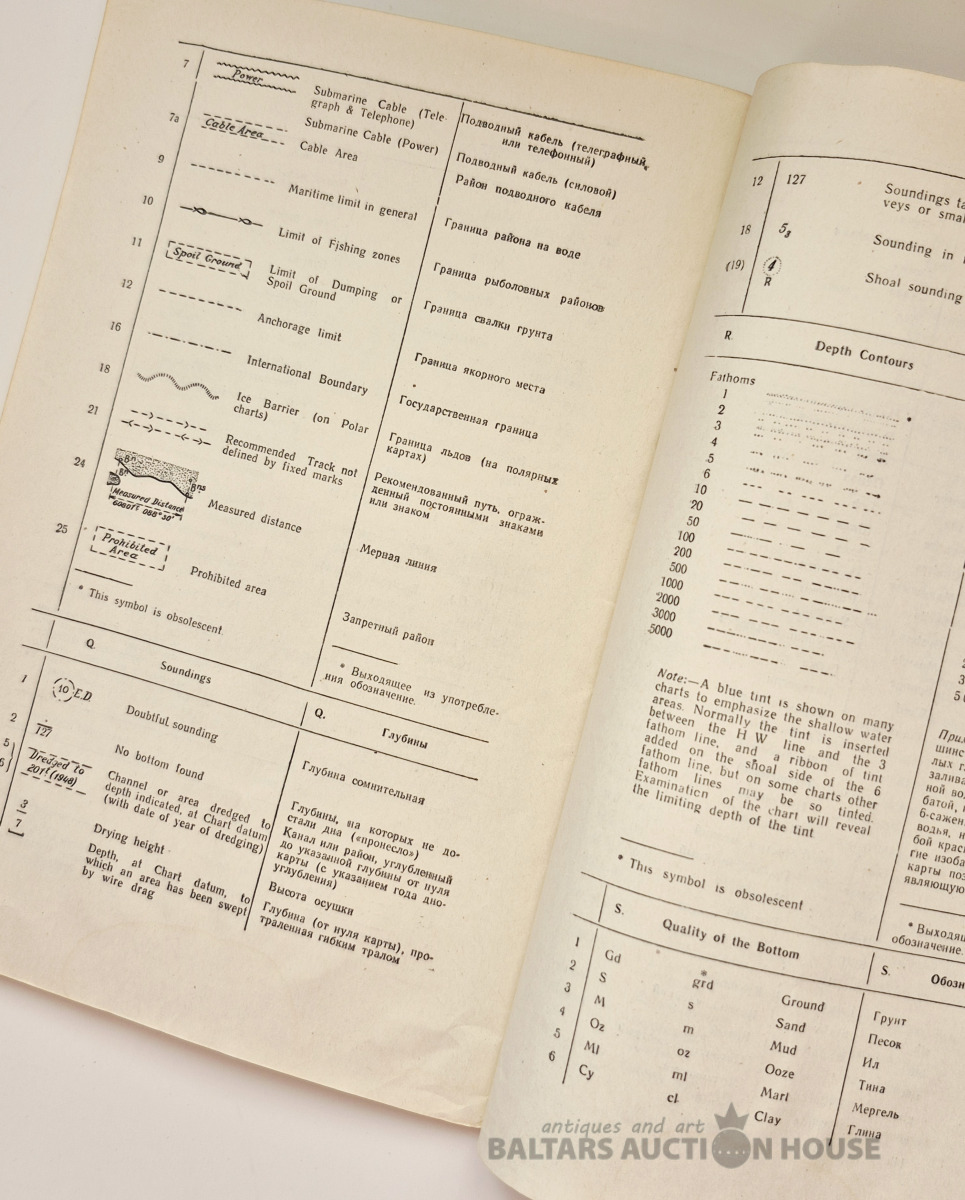 7
Power
Submarine Cable (Tele-
graph & Telephone)
Подводный кабель (телеграфный,
или телефонный)
7a
Submarine Cable (Power)
Подводный кабель (силовой)
Cable Area
Cable Area
Район подводного кабеля
9
Maritime limit in general
Граница района на воде
10
Limit of Fishing zones
Граница рыболовных районов
11
Spoil Ground
Limit of Dumping or
Spoil Ground
Граница свалки грунта
12
Anchorage limit
Граница якорного места
16
International Boundary
Государственная граница
18
Ice Barrier (on Polar
charts)
Граница льдов (на полярных
картах)
21
Recommended Track not
defined by fixed marks
Рекомендованный путь, ограж-
денный постоянными знаками
или знаком
24
Bn
Bn
Bns
Measured Distance
6080ft 088°30'
Measured distance
Мерная линия
25
Prohibited
Area
Prohibited area
Запретный район
* This symbol is obsolescent
* Выходящее из употребле-
ния обозначение.
Q.
Soundings
Q.
Глубины
1
10 E.D.
Doubtful sounding
Глубина сомнительная
2
127
No bottom found
Глубины, на которых не до-
стали дна («пронесло»)
5
6
Dredged to
20ft (1948)
Channel or area dredged to
depth indicated, at Chart datum
(with date of year of dredging)
Канал или район, углубленный
до указанной глубины от нуля
карты (с указанием года дно-
углубления)
3
Drying height
Высота осушки
7
Depth, at Chart datum, to
which an area has been swept
by wire drag
Глубина (от нуля карты), про-
траленная гибким тралом
12
127
Soundings
veys or
18
5₃
Sounding in
(19)
4
R
Shoal sounding
R.
Depth Contours
Fathoms
1
2
3
4
5
6
10
20
50
100
200
500
1000
2000
3000
5000
Note:—A blue tint is shown on many
charts to emphasize the shallow water
areas. Normally the tint is inserted
between the H W line and the 3
fathom line, and a ribbon of tint
added on the shoal side of the 6
fathom line, but on some charts other
fathom lines may be so tinted.
Examination of the chart will reveal
the limiting depth of the tint
* This symbol is obsolescent
лых
ной
батой,
6-сажен
водья,
гие
карты
являющую
* Выходящ
обозначение.
S.
Quality of the Bottom
S.
1
Gd
grd
Ground
Грунт
2
S
s
Sand
Песок
3
M
m
Mud
Ил
4
Oz
oz
Ooze
Тина
5
Ml
ml
Marl
Мергель
6
Cy
cl.
Clay
Глина
antiques and art
BALTARS AUCTION HOUSE